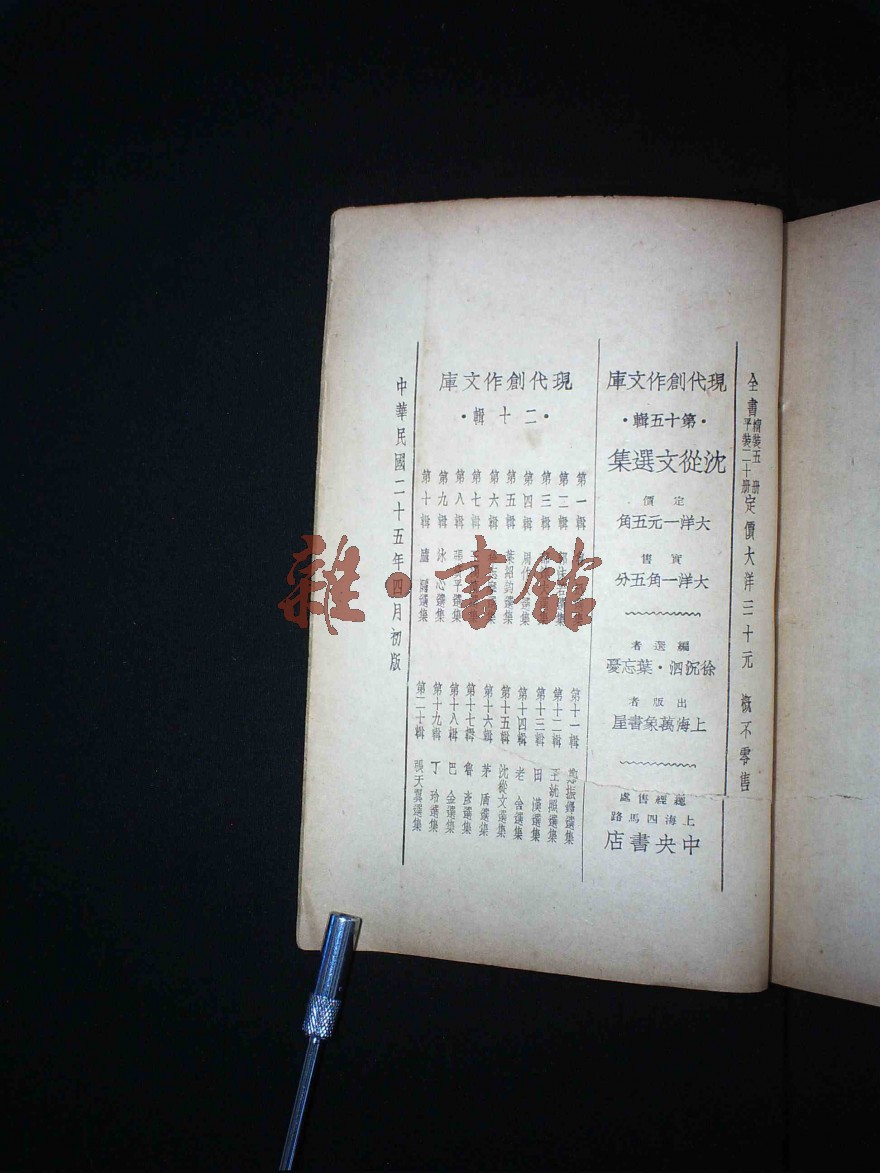 全書精裝五冊平裝二十冊定價大洋三十元 概不零售
現代創作文庫
·第十五輯·
沈從文選集
定價
大洋一元五角
實售
大洋一角五分
編選者
徐沉泗·葉忘憂
出版者
上海萬象書屋
總經售處
上海四馬路
中央書店
現代創作文庫
·二十輯·
第一輯
第二輯
第三輯
第四輯 周作人選集
第五輯 葉紹鈞選集
第六輯
第七輯
第八輯 張資平選集
第九輯 冰心選集
第十輯 廬隱選集
第十一輯 鄭振鐸選集
第十二輯 王統照選集
第十三輯 田漢選集
第十四輯 老舍選集
第十五輯 沈從文選集
第十六輯 茅盾選集
第十七輯 魯彥選集
第十八輯 巴金選集
第十九輯 丁玲選集
第二十輯 張天翼選集
中華民國二十五年四月初版
雜·書館